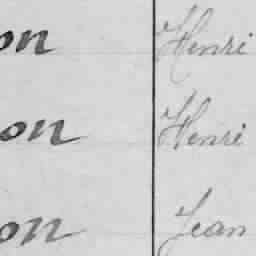 on Henri
on Henri
on Jean